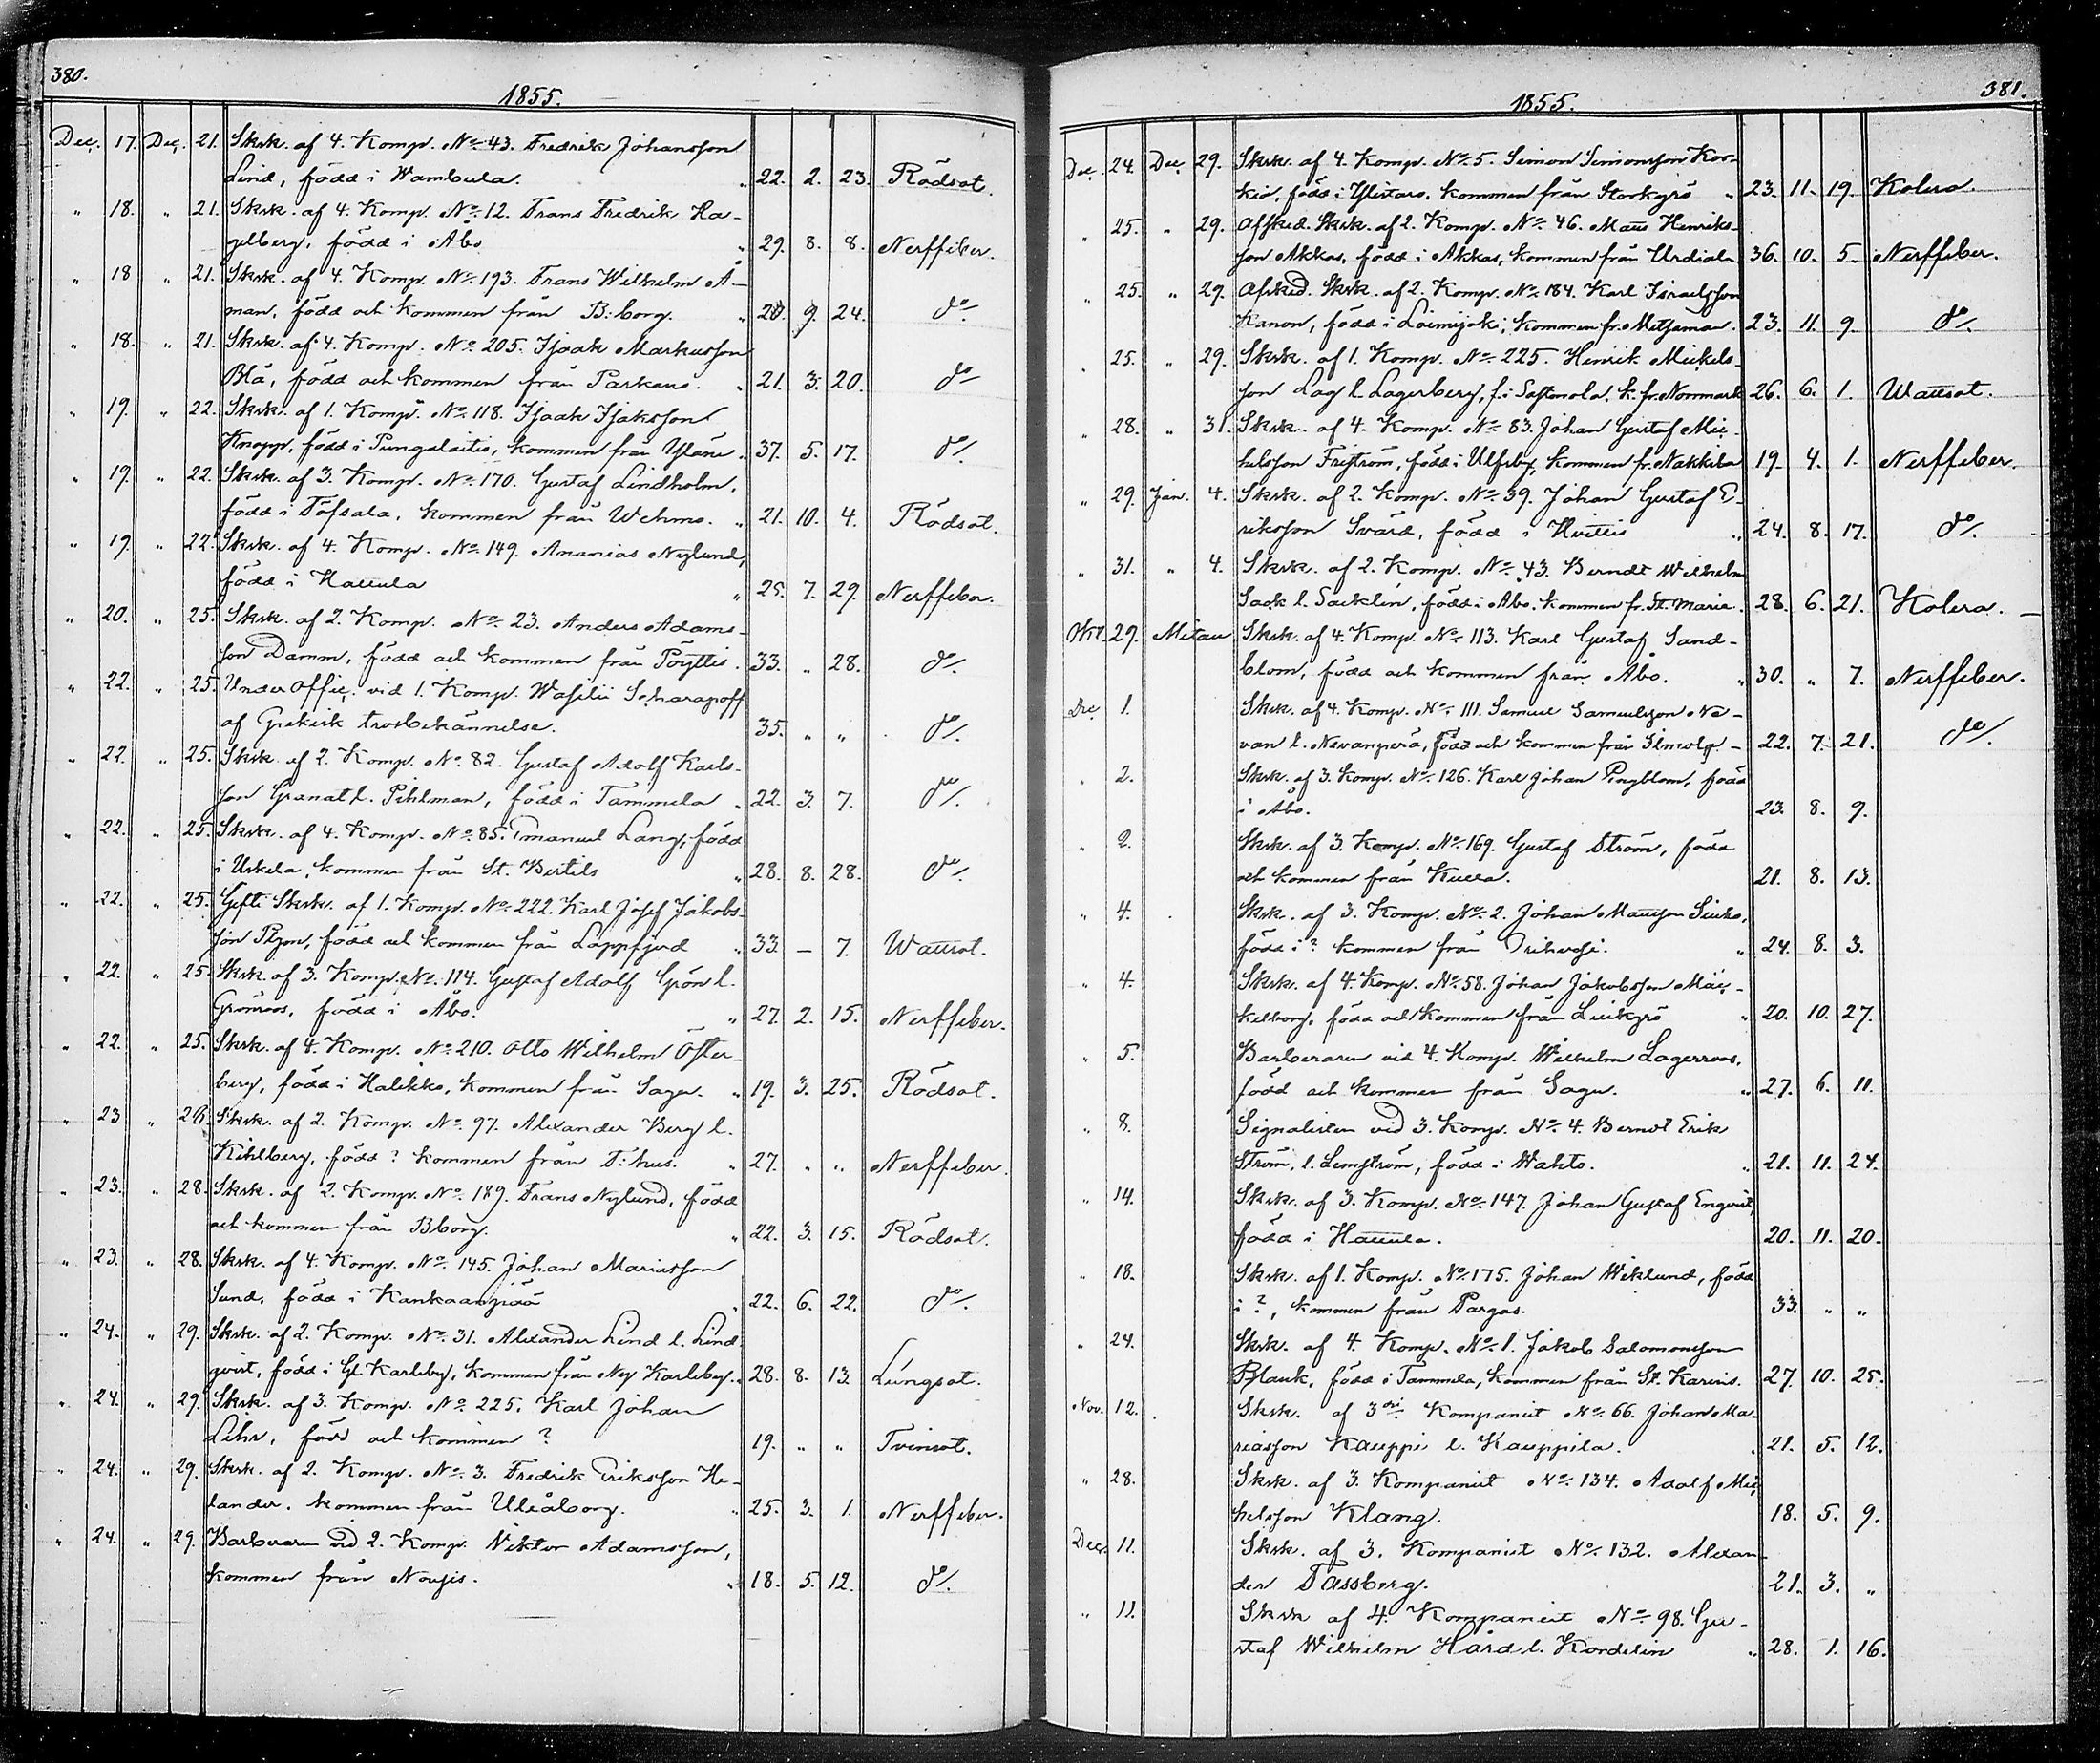 380.
1855.
Dec. 17. Dec. 21. Skrk. af 4. Komp. No. 43. Fredrik Johansson
Lind, född i Wambula. " 22. 2. 23. Rödsot.
" 18. " 21. Skrk. af 4. Komp. No. 12. Frans Fredrik Ha-
gelberg, född i Åbo " 29. 8. 8. Nerffeber.
" 18 " 21. Skrk. af 4. Komp. No. 193. Frans Wilhelm Å-
man, född och kommen från B:borg. " 20. 9. 24. do
" 18. " 21. Skrk. af 4. Komp. No. 205. Isaak Markusson
Blå, född och kommen från Parkano. " 21. 3. 20. do
" 19. " 22. Skrk. af 1. Komp. No. 118. Isaak Isaksson
Knapp, född i Pungalaitis, kommen från Yläne " 37. 5. 17. do
" 19. " 22. Skrk. af 3. Komp. No. 170. Gustaf Lindholm,
född i Töfsala, kommen från Wehmo. " 21. 10. 4. Rödsot.
" 19. " 22. Skrk. af 4. Komp. No. 149. Ananias Nylund,
född i Hauula " 25. 7. 29. Nerffeber.
" 20. " 25. Skrk. af 2. Komp. No. 23. Anders Adams-
son Damm, född och kommen från Pöyttis. 33. " 28. do
" 22. " 25. Underoffic. vid 1. Komp. Wasilii Scharapoff
af Grekisk trosbekännelse. 35. " " do
" 22. " 25. Skrk. af 2. Komp. No. 82. Gustaf Adolf Karls-
son Granat l. Pihlman, född i Tammela " 22. 3. 7. do
" 22. " 25. Skrk. af 4. Komp. No. 85. Emanuel Lang, född
i Uskela, kommen från St. Bertils " 28. 8. 28. do
" 22. " 25. Gifte Skrk. af 1. Komp. No. 222. Karl Josef Jakobs-
son, född och kommen från Lappfjerd " 33. — 7. Wattusot.
" 22. " 25. Skrk. af 3. Komp. No. 114. Gustaf Adolf Grön l.
Grönroos, född i Åbo. " 27. 2. 15. Nerffeber.
" 22. " 25. Skrk. af 4. Komp. No. 210. Otto Wilhelm Öster-
berg, född i Halikko, kommen från Sagu. " 19. 3. 25. Rödsot.
" 23 " 28. Skrk. af 2. Komp. No. 97. Alexander Berg l.
Kihlberg, född? kommen från T:hus. " 27. " " Nerffeber.
" 23. " 28. Skrk. af 2. Komp. No. 189. Frans Nylund, född
och kommen från Bborg. " 22. 3. 15. Rödsot.
" 23. " 28. Skrk. af 4. Komp. No. 145. Johan Mariasson
Sund, född i Kankaanpää " 22. 6. 22. do
" 24. " 29. Skrk. af 2. Komp. No. 31. Alexander Lind l. Lind-
qvist, född i Gl Karleby, kommen från Ny Karleby. 28. 8. 13. Lungsot.
" 24. " 29. Skrk. af 3. Komp. No. 225. Karl Johan
Lihr, född och kommen? 19. " " Tvinsot.
" 24. " 29. Skrk. af 2. Komp. No. 3. Fredrik Eriksson He-
lander, kommen från Uleåborg. " 25. 3. 1. Nerffeber.
" 24. " 29. Barberaren vid 2. Komp. Viktor Adamsson,
kommen från Nousis. " 18. 5. 12. do
381.
1855.
Dec. 24. Dec. 29. Skrk. af 4. Komp. No. 5. Simon Simonsson Kor-
kio, född i Ylistaro, kommen från Storkyrö " 23. 11. 19. Kolera.
" 25. " 29. Afsked. Skrk. af 2. Komp. No. 46. Matts Henriks-
son Akkas, född i Akkas, kommen från Urdiala 36. 10. 5. Nerffeber.
" 25. " 29. Afsked. Skrk. af 2. Komp. No. 184. Karl Israelsson
Kanon, född i Loimijoki, kommen fr. Metsämaa. 23. 11. 9. do
" 25. " 29. Skrk. af 1. Komp. No. 225. Henrik Mickels-
son Lag l. Lagerberg, f. i Sastmola. k. fr. Norrmark 26. 6. 1. Wattusot.
" 28. " 31. Skrk. af 4. Komp. No. 83. Johan Gustaf Mic-
helsson Friström, född i Ulfsby, kommen fr. Nakkila 19. 4. 1. Nerffeber.
" 29. Jan. 4. Skrk. af 2. Komp. No. 39. Johan Gustaf E-
riksson Svärd, född i Huittis " 24. 8. 17. do
" 31. " 4. Skrk. af 2. Komp. No. 43. Berndt Wilhelm
Sack l. Sacklén, född i Åbo. kommen fr. St. Marie. 28. 6. 21. Kolera. —
Okt. 29. Mitau Skrk. af 4. Komp. No. 113. Karl Gustaf Sand-
blom, född och kommen från Åbo. " 30. " 7. Nerffeber.
Dec. 1. Skrk. af 4. Komp. No. 111. Samuel Samuelsson Ne-
van l. Nevanperä, född och kommen från Ilmola — 22. 7. 21. do
" 2. Skrk. af 3. Komp. No. 126. Karl Johan Pingblom, född
i Åbo. 23. 8. 9.
" 2. Skrk. af 3. Komp. No. 169. Gustaf Ström, född
och kommen från Kulla. 21. 8. 13.
" 4. Skrk. af 3. Komp. No. 2. Johan Mattsson,
född i? kommen från Orihvesi. " 24. 8. 3.
" 4. Skrk. af 4. Komp. No. 58. Johan Jakobsson Mäc-
kelborg, född och kommen från " 20. 10. 27.
" 5. Barberaren vid 4. Komp. Wilhelm Lagerroos,
född och kommen från Sagu. " 27. 6. 11.
" 8. Signalisten vid 3. Komp. No. 4. Berndt Erik
Ström, l. Lemström, född i Wahto. " 21. 11. 24.
" 14. Skrk. af 3. Komp. No. 147. Johan Gustaf Enqvist,
född i Hauula. 20. 11. 20.
" 18. Skrk. af 1. Komp. No. 175. Johan Wiklund, född
i?, kommen från Pargas. 33. " "
" 24. Skrk. af 4. Komp. No. 1. Jakob Salomonsson
Blank, född i Tammela, kommen från St. Karins. 27. 10. 25.
Nov. 12. Skrk. af 3die Kompaniet No. 66. Johan Ma-
riasson Kauppi l. Kauppila. " 21. 5. 12.
" 28. Skrk. af 3. Kompaniet No. 134. Adolf Mic-
helsson Klang. 18. 5. 9.
Dec. 11. Skrk. af 3. Kompaniet No. 132. Alexan-
der Tassberg. 21. 3. "
" 11. Skrk af 4. Kompaniet No. 98. Gu-
staf Wilhelm Hård l. Kordelin " 28. 1. 16.